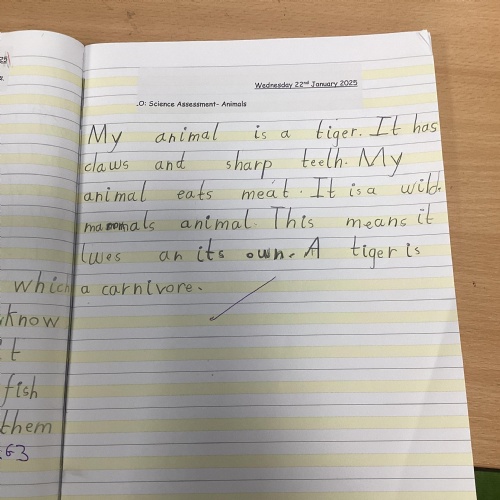 Wednesday 22nd January 2025
.O: Science Assessment- Animals
My animal is a tiger. It has
claws and sharp teeth. My
animal eats meat. It is a wild.
mammals animal. This means it
lives an its own. A tiger is
a carnivore.
which
know
it
fish
them